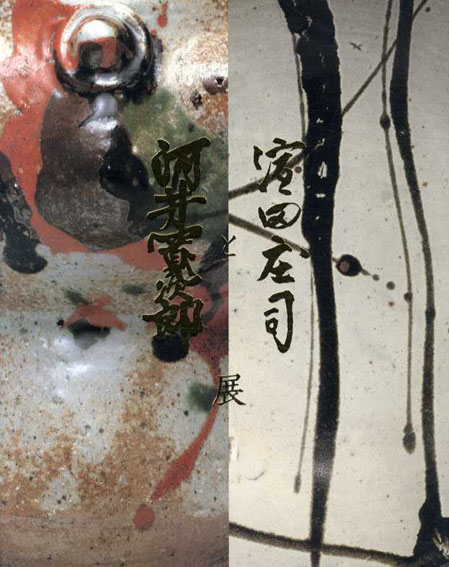 濱田庄司
と
河井寛次郎
展